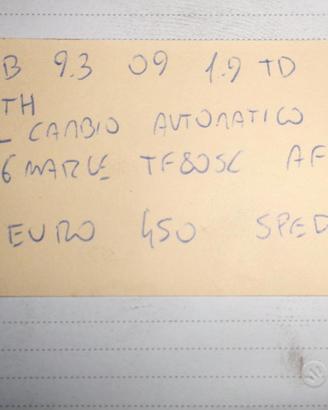 B 9.3 09 1.9 TD
TH
L CAMBIO AUTOMATICO
6 MARCE TF80SC AF
EURO 450 SPED